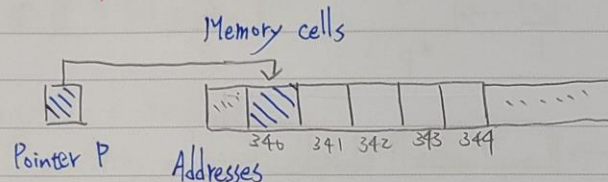 Memory cells
340 341 342 343 344
Pointer P Addresses